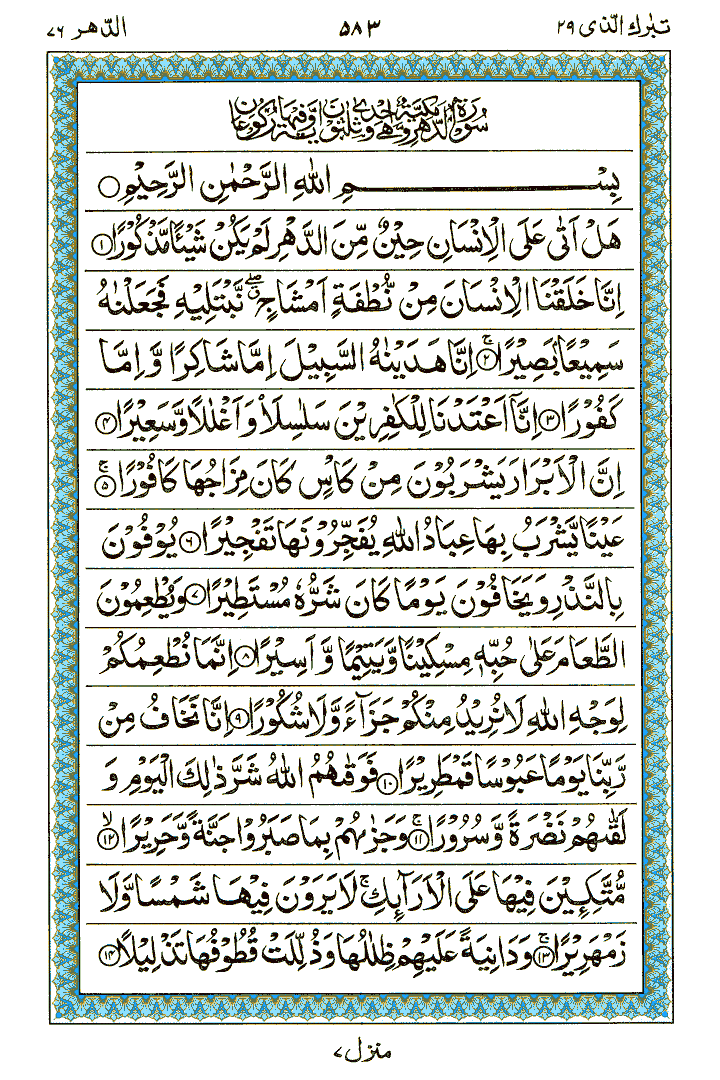 تبٰرك الّذی ۲۹ ۵۸۳ الدّهر ۷۶
سُوْرَةُ الدَّهْرِ مَكِّيَّةٌ وَّهِيَ اِحْدٰى وَثَلٰثُوْنَ اٰيَةً وَّفِيْهَا رُكُوْعَانِ
بِسْمِ اللهِ الرَّحْمٰنِ الرَّحِيْمِ ○
هَلْ اَتٰى عَلَى الْاِنْسَانِ حِيْنٌ مِّنَ الدَّهْرِ لَمْ يَكُنْ شَيْئًا مَّذْكُوْرًا ۝۱
اِنَّا خَلَقْنَا الْاِنْسَانَ مِنْ نُّطْفَةٍ اَمْشَاجٍ ۖۗ نَّبْتَلِيْهِ فَجَعَلْنٰهُ
سَمِيْعًۢا بَصِيْرًا ۚ۝۲ اِنَّا هَدَيْنٰهُ السَّبِيْلَ اِمَّا شَاكِرًا وَّ اِمَّا
كَفُوْرًا ۝۳ اِنَّاۤ اَعْتَدْنَا لِلْكٰفِرِيْنَ سَلٰسِلَا۟ وَ اَغْلٰلًا وَّ سَعِيْرًا ۝۴
اِنَّ الْاَبْرَارَ يَشْرَبُوْنَ مِنْ كَاْسٍ كَانَ مِزَاجُهَا كَافُوْرًا ۚ۝۵
عَيْنًا يَّشْرَبُ بِهَا عِبَادُ اللهِ يُفَجِّرُوْنَهَا تَفْجِيْرًا ۝۶ يُوْفُوْنَ
بِالنَّذْرِ وَ يَخَافُوْنَ يَوْمًا كَانَ شَرُّهٗ مُسْتَطِيْرًا ۝۷ وَ يُطْعِمُوْنَ
الطَّعَامَ عَلٰى حُبِّهٖ مِسْكِيْنًا وَّ يَتِيْمًا وَّ اَسِيْرًا ۝۸ اِنَّمَا نُطْعِمُكُمْ
لِوَجْهِ اللهِ لَا نُرِيْدُ مِنْكُمْ جَزَآءً وَّ لَا شُكُوْرًا ۝۹ اِنَّا نَخَافُ مِنْ
رَّبِّنَا يَوْمًا عَبُوْسًا قَمْطَرِيْرًا ۝۱۰ فَوَقٰىهُمُ اللهُ شَرَّ ذٰلِكَ الْيَوْمِ وَ
لَقّٰىهُمْ نَضْرَةً وَّ سُرُوْرًا ۚ۝۱۱ وَ جَزٰىهُمْ بِمَا صَبَرُوْا جَنَّةً وَّ حَرِيْرًا ۙ۝۱۲
مُّتَّكِـِٕيْنَ فِيْهَا عَلَى الْاَرَآىِٕكِ ۚ لَا يَرَوْنَ فِيْهَا شَمْسًا وَّ لَا
زَمْهَرِيْرًا ۚ۝۱۳ وَ دَانِيَةً عَلَيْهِمْ ظِلٰلُهَا وَ ذُلِّلَتْ قُطُوْفُهَا تَذْلِيْلًا ۝۱۴
منزل ۷